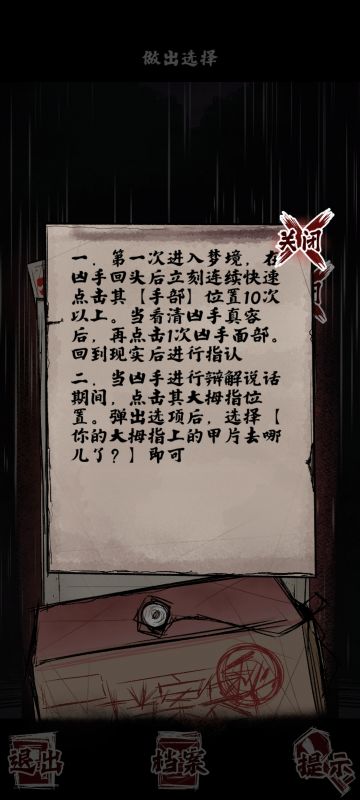 做出选择
关闭
一，第一次进入梦境，在
凶手回头后立刻连续快速
点击其【手部】位置10次
以上。当看清凶手真容
后，再点击1次凶手面部。
回到现实后进行指认
二，当凶手进行辩解说话
期间，点击其大拇指位
置。弹出选项后，选择【
你的大拇指上的甲片去哪
儿了？】即可
退出
档案
提示